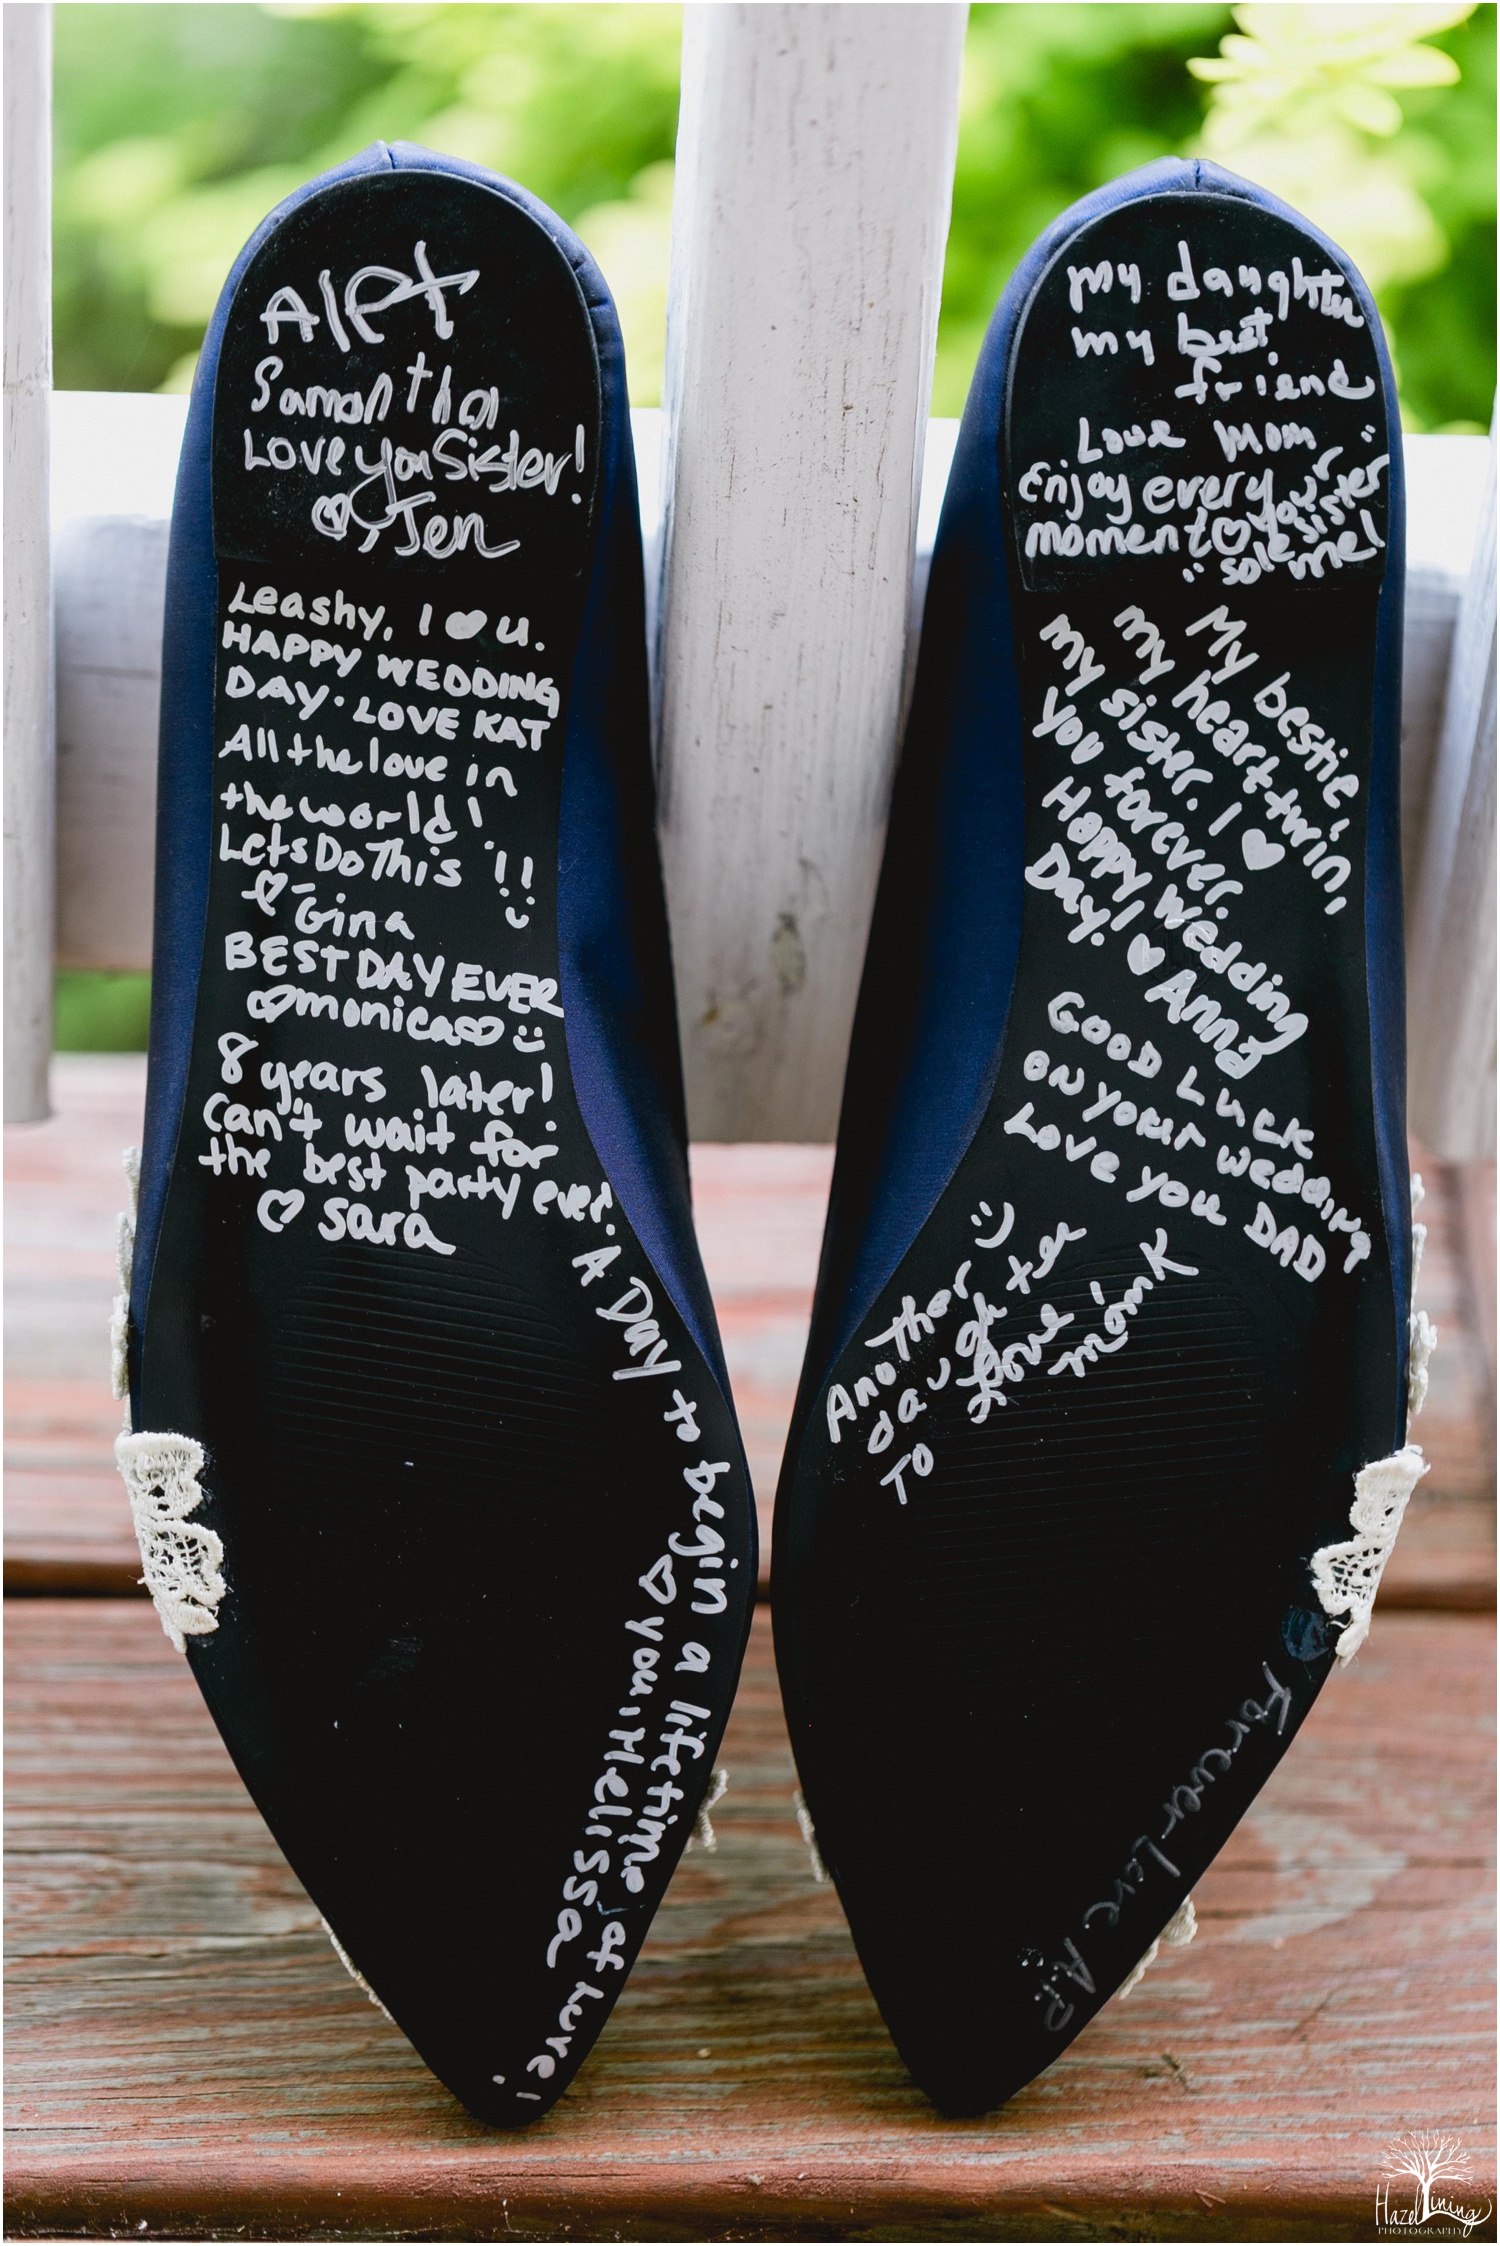 Samantha
Love you Sister!
♡, Jen
Leashy, I ♥ U.
HAPPY WEDDING
DAY. LOVE KAT
All the love in
the world!
Lets Do This !!
♡ - Gina
BEST DAY EVER
♡monica♡ :)
8 years later!
Can't wait for
the best party ever.
♡ sara
A Day to begin a lifetime of love!
♡ you, Melissa
my daughter
my best
friend
Love Mom
Enjoy every
moment ♡ your
"sole sister"
mel
My bestie,
My heart twin,
My sister. I ♥
you forever.
Happy Wedding
Day! ♥ Anna
GOOD Luck
ON your wedding
Love you DAD
Another :)
daughter
TO Love
mom K
Forever Love A.P.
Hazel Lining
PHOTOGRAPHY